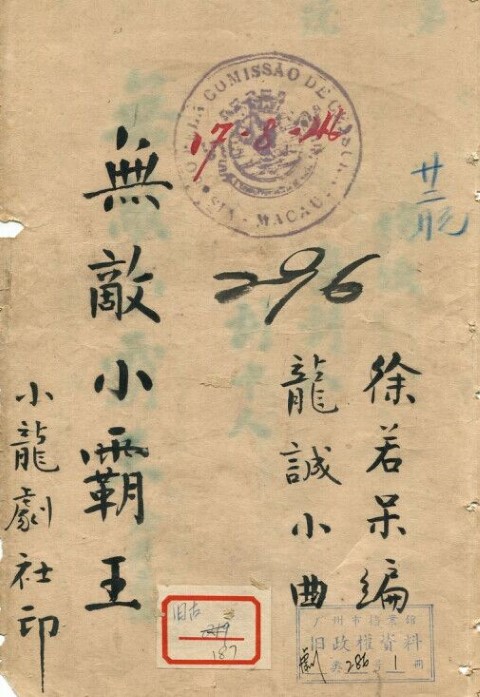 COMISSÃO DE
MACAU
17-8-46
廿二
296
徐若呆編
龍誠小曲
無敵小霸王
小龍劇社印
旧古
187
广州市
旧政權資料
劇 286 1 冊